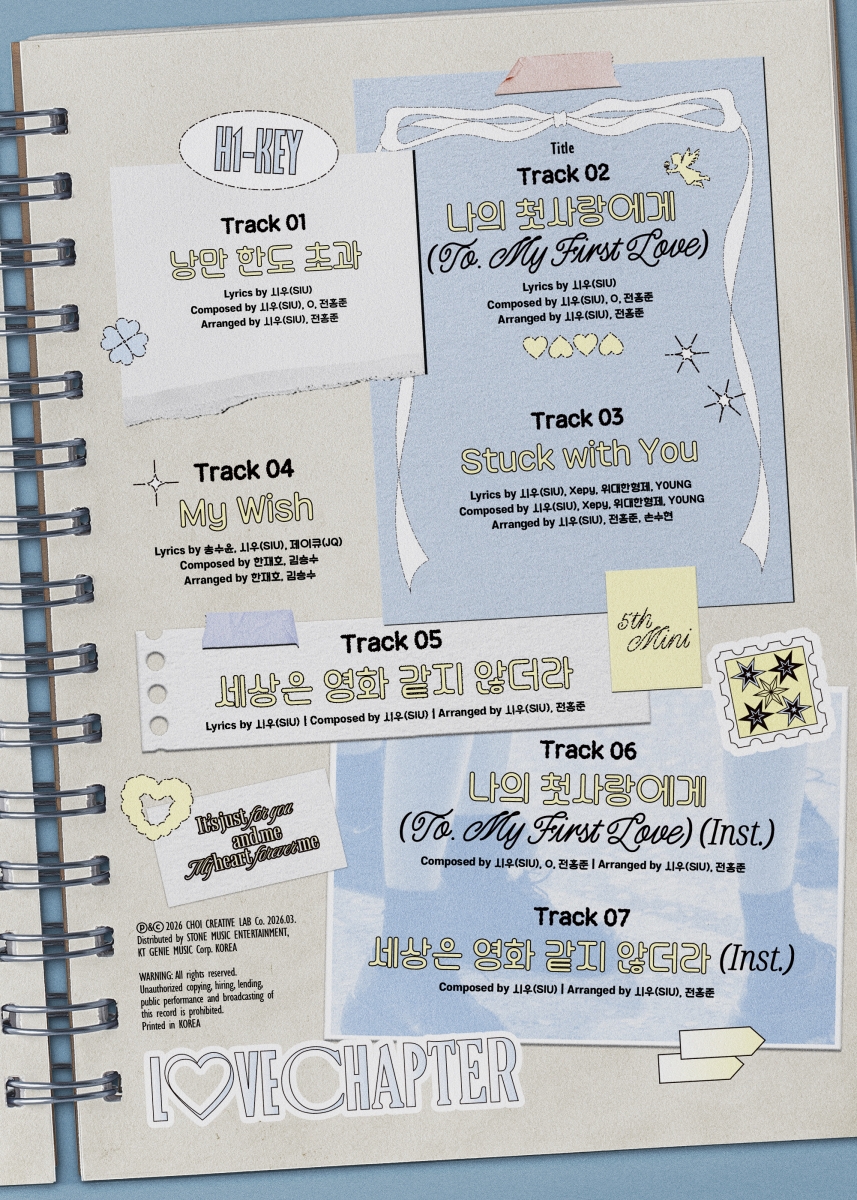 H1-KEY
Track 01
낭만 한도 초과
Lyrics by 시우(SIU)
Composed by 시우(SIU), O, 전홍준
Arranged by 시우(SIU), 전홍준
Title
Track 02
나의 첫사랑에게
(To. My First Love)
Lyrics by 시우(SIU)
Composed by 시우(SIU), O, 전홍준
Arranged by 시우(SIU), 전홍준
Track 03
Stuck with You
Lyrics by 시우(SIU), Xepy, 위대한형제, YOUNG
Composed by 시우(SIU), Xepy, 위대한형제, YOUNG
Arranged by 시우(SIU), 전홍준, 손수현
Track 04
My Wish
Lyrics by 송수윤, 시우(SIU), 제이큐(JQ)
Composed by 한재호, 김승수
Arranged by 한재호, 김승수
5th
Mini
Track 05
세상은 영화 같지 않더라
Lyrics by 시우(SIU) | Composed by 시우(SIU) | Arranged by 시우(SIU), 전홍준
Track 06
나의 첫사랑에게
(To. My First Love) (Inst.)
Composed by 시우(SIU), O, 전홍준 | Arranged by 시우(SIU), 전홍준
It's just for you
and me
My heart forever me
Track 07
세상은 영화 같지 않더라 (Inst.)
Composed by 시우(SIU) | Arranged by 시우(SIU), 전홍준
Ⓟ&© 2026 CHOI CREATIVE LAB Co. 2026.03.
Distributed by STONE MUSIC ENTERTAINMENT,
KT GENIE MUSIC Corp. KOREA
WARNING: All rights reserved.
Unauthorized copying, hiring, lending,
public performance and broadcasting of
this record is prohibited.
Printed in KOREA
LOVE CHAPTER